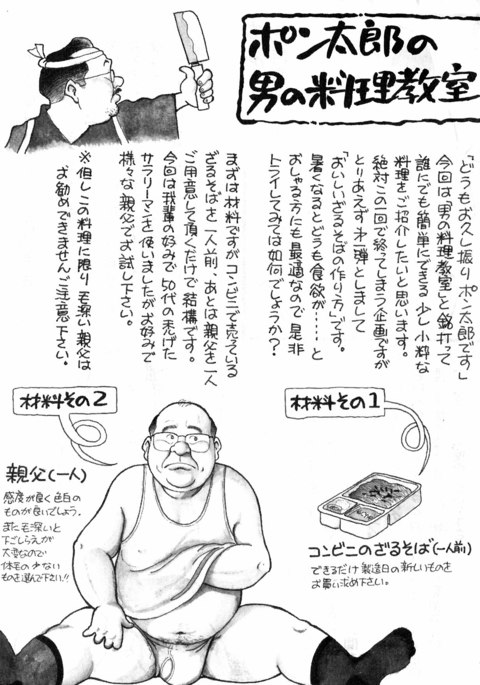 ポン太郎の
男の料理教室
「どうもお久し振りポン太郎です」
今回は「男の料理教室」と銘打って
誰にでも簡単にできる少し小粋な
料理をご紹介したいと思います。
絶対この一回で終ってしまう企画ですが
とりあえず第一弾としまして
「おいしいざるそばの作り方」です。
暑くなるとどうも食欲が……と
おっしゃる方にも最適なので是非
トライしてみては如何でしょうか？
まずは材料ですがコンビニで売っている
ざるそばを一人前、あとは親父を一人
ご用意して頂くだけで結構です。
今回は我輩の好みで50代のはげた
サラリーマンを使いましたがお好みで
様々な親父でお試し下さい。
※但しこの料理に限り毛深い親父は
お勧めできませんご注意下さい。
材料その1
コンビニのざるそば(一人前)
できるだけ製造日の新しいものを
お買い求め下さい。
材料その2
親父(一人)
感度が良く色白の
ものが良いでしょう。
また毛深いと
下ごしらえが
大変なので
体毛の少ない
ものを選んで下さい!!